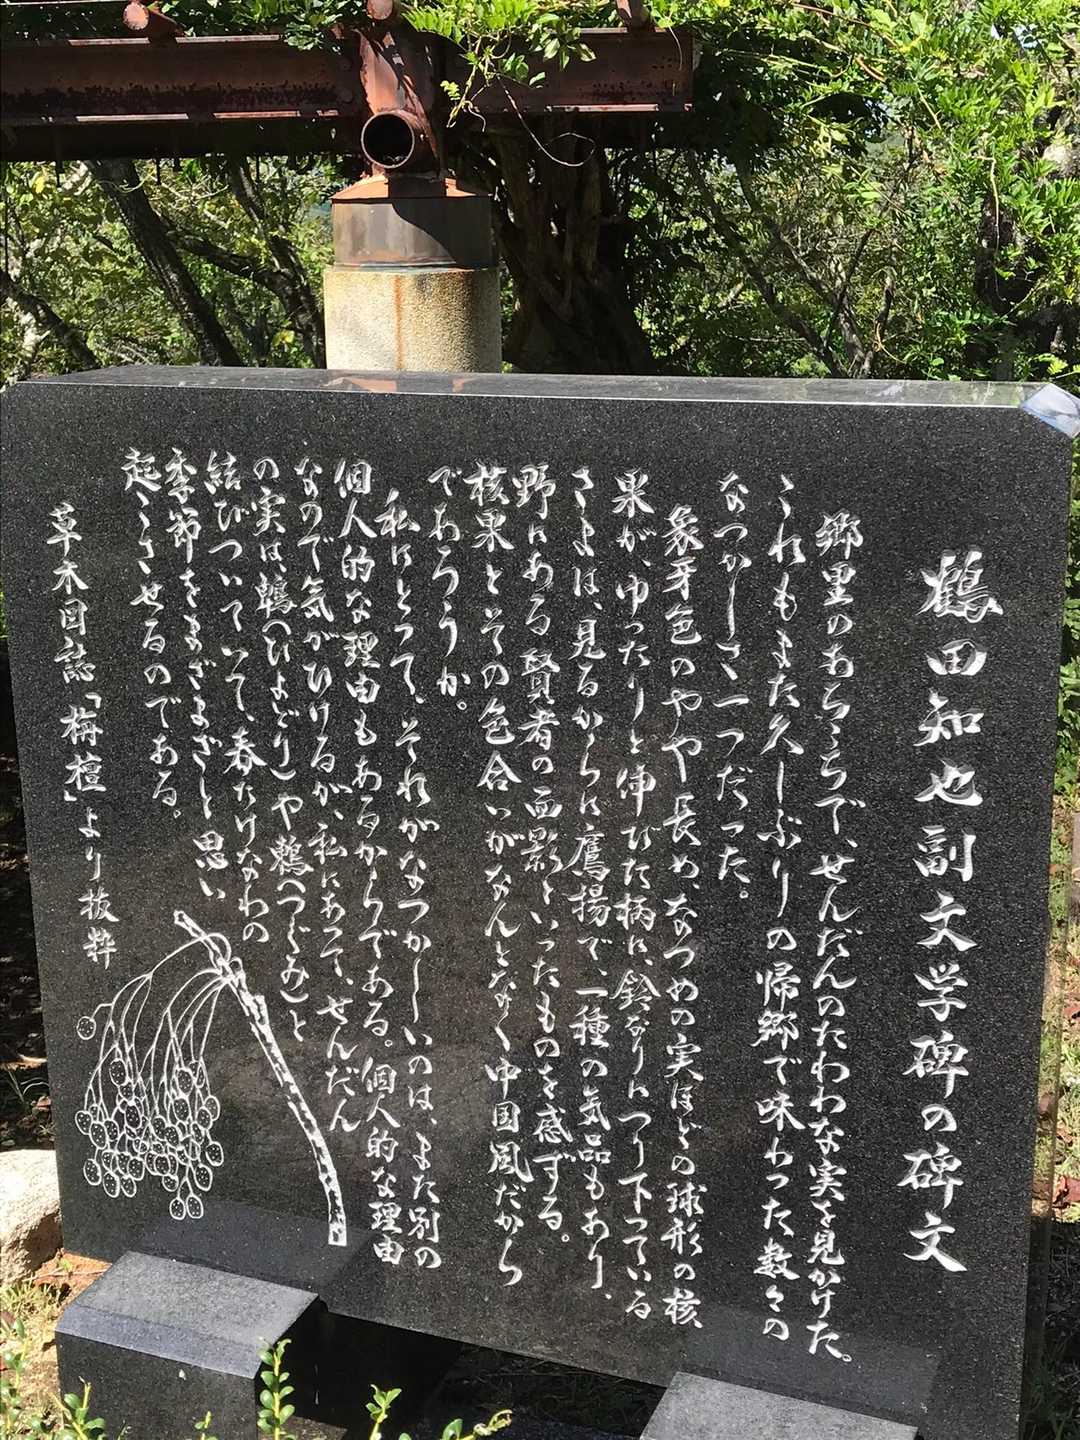 鶴田知也副文学碑の碑文
郷里のあちこちで、せんだんのたわわな実を見かけた。
これもまた久しぶりの帰郷で味わった数々の
なつかしさ一つだった。
象牙色のやや長め、なつめの実ほどの球形の核
果が、ゆったりと伸びた柄に、鈴なりにつり下っている
さまは、見るからに鷹揚で、一種の気品もあり、
野にある賢者の面影といったものを感ずる。
核果とその色合いがなんとなく中国風だから
であろうか。
私にとって、それがなつかしいのは、また別の
個人的な理由もあるからである。個人的な理由
なので気がひけるが、私にあって、せんだん
の実は、鵯(ひよどり)や鶫(つぐみ)と
結びついていて、春たけなわの
季節をまざまざと思い
起こさせるのである。
草木図誌「栴檀」より抜粋